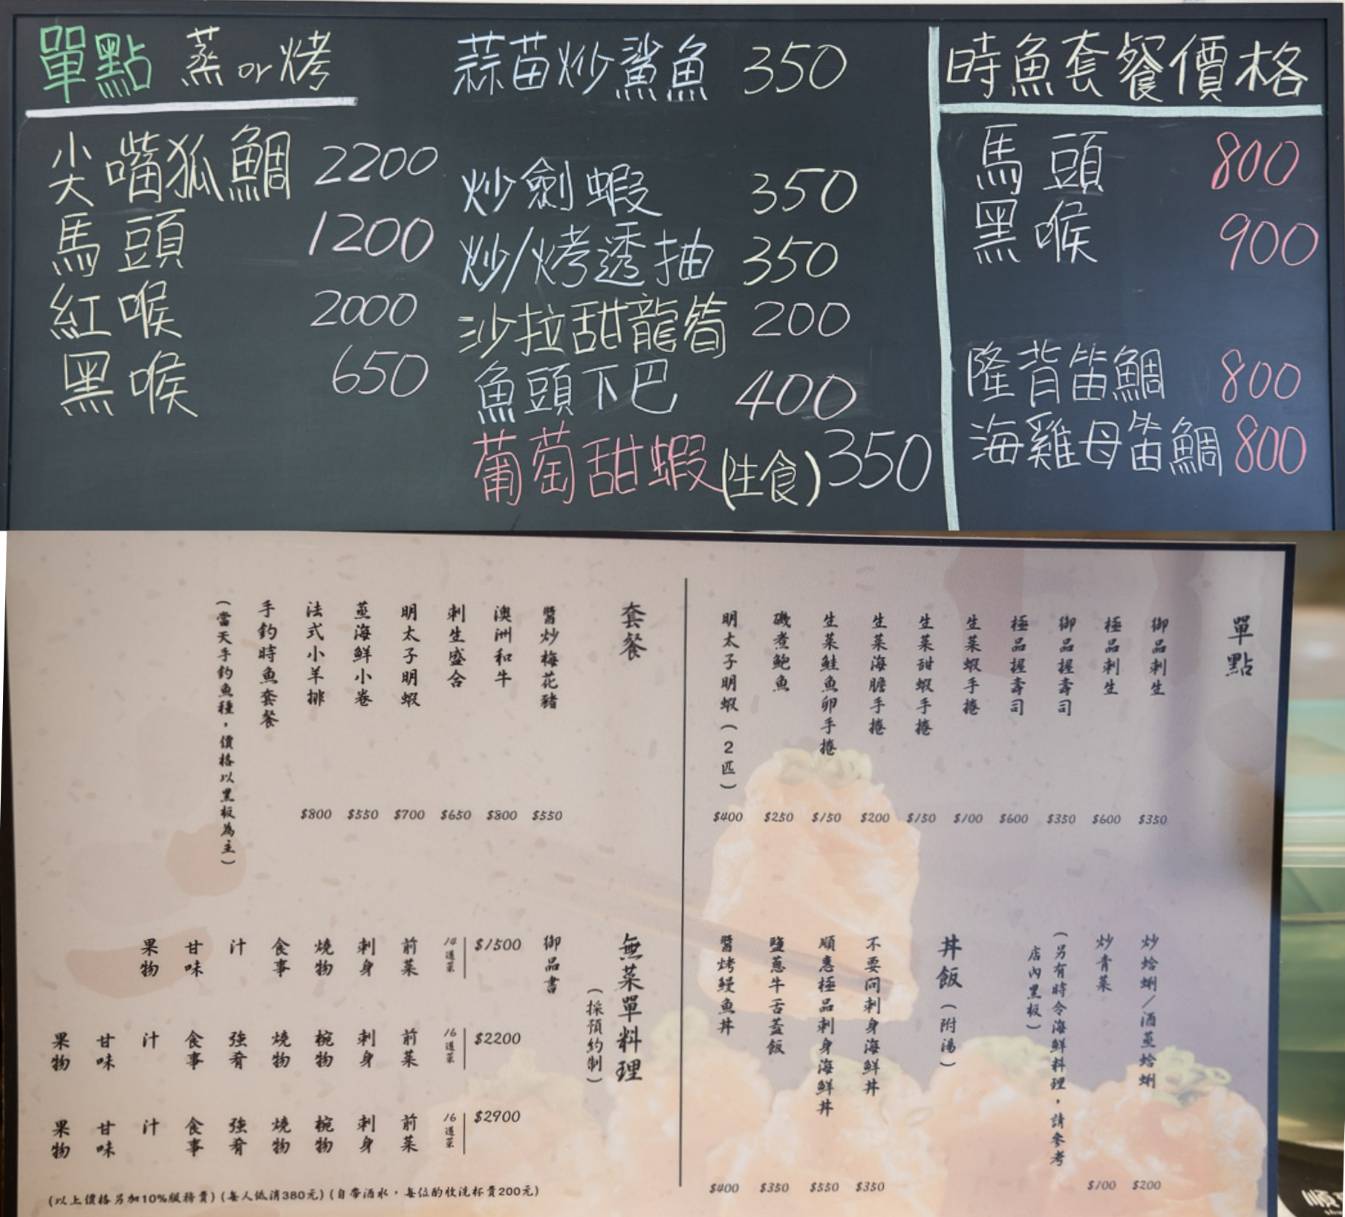 單點 蒸or烤
尖嘴狐鯛 2200
馬頭 1200
紅喉 2000
黑喉 650
蒜苗炒鯊魚 350
炒劍蝦 350
炒/烤透抽 350
沙拉甜龍筍 200
魚頭下巴 400
葡萄甜蝦(生食) 350
時魚套餐價格
馬頭 800
黑喉 900
隆背笛鯛 800
海雞母笛鯛 800
單點
御品刺生 $350
極品刺生 $600
御品握壽司 $350
極品握壽司 $600
生菜蝦手捲 $100
生菜甜蝦手捲 $150
生菜海膽手捲 $200
生菜鮭魚卵手捲 $150
磯煮鮑魚 $250
明太子明蝦(2匹) $400
炒蛤蜊/酒蒸蛤蜊 $200
炒青菜 $100
(另有時令海鮮料理,請參考
店內黑板)
丼飯(附湯)
不要問刺身海鮮丼 $350
順意極品刺身海鮮丼 $550
鹽蔥牛舌蓋飯 $350
醬烤鰻魚丼 $400
套餐
醬炒梅花豬 $550
澳洲和牛 $800
刺生盛合 $650
明太子明蝦 $700
蒸海鮮小卷 $550
法式小羊排 $800
手釣時魚套餐
(當天手釣魚種,價格以黑板為主)
無菜單料理
(採預約制)
御品書
$1500 10道菜 前菜 刺身 燒物 食事 汁 甘味 果物
$2200 16道菜 前菜 刺身 椀物 燒物 強肴 食事 汁 甘味 果物
$2900 16道菜 前菜 刺身 椀物 燒物 強肴 食事 汁 甘味 果物
(以上價格另加10%服務費)(每人低消380元)(自帶酒水,每位酌收洗杯費200元)